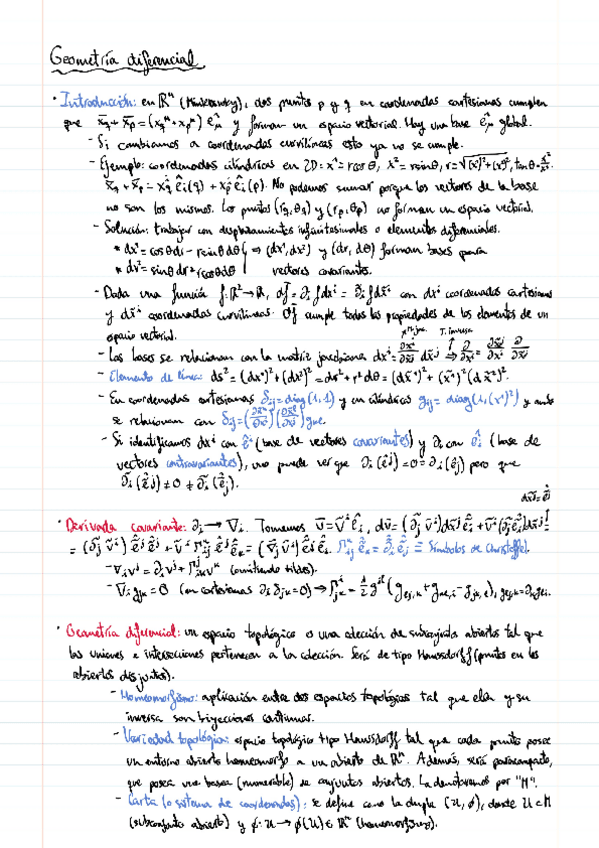 Geometría diferencial
· Introducción: en ℝⁿ (Minkowsky), dos puntos p y q en coordenadas cartesianas cumplen
que x̄q + x̄p = (xq^μ + xp^μ) ê_μ y forman un espacio vectorial. Hay una base ê_μ global.
- Si cambiamos a coordenadas curvilíneas esto ya no se cumple.
- Ejemplo: coordenadas cilíndricas en 2D: x¹ = r cos θ, x² = r sin θ, r = √(x¹)²+(x²)², tan θ = x²/x¹.
x̄q + x̄p = xq^i ê_i(q) + xp^i ê_i(p). No podemos sumar porque los vectores de la base
no son los mismos. Los puntos (rq, θq) y (rp, θp) no forman un espacio vectorial.
- Solución: trabajar con desplazamientos infinitesimales o elementos diferenciales.
* dx¹ = cos θ dr - r sin θ dθ ⇒ (dx¹, dx²) y (dr, dθ) forman bases para
* dx² = sin θ dr + r cos θ dθ vectores covariantes.
- Dada una función f: ℝ² → ℝ, df = ∂_i f dx^i = ∂̃_i f dx̃^i con dx^i coordenadas cartesianas
y dx̃^i coordenadas curvilíneas. df cumple todas las propiedades de los elementos de un
espacio vectorial.
- Las bases se relacionan con la matriz jacobiana dx^i = ∂x^i/∂x̃^j dx̃^j ⇒ ∂/∂x^i = ∂x̃^j/∂x^i ∂/∂x̃^j
- Elemento de línea: ds² = (dx¹)² + (dx²)² = dr² + r² dθ = (dx̃¹)² + (x̃¹)² (dx̃²)².
- En coordenadas cartesianas δ_ij = diag(1,1) y en cilíndricas g_ij = diag(1,(x¹)²) y ambas
se relacionan con
- Si identificamos dx^i con ê^i (base de vectores covariantes) y ∂_i con ê_i (base de
vectores contravariantes), uno puede ver que ∂_i(ê^j) = 0 = ∂_i(ê_j) pero que
∂̃_i(ê^j) ≠ 0 ≠ ∂̃_i(ê_j).
· Derivada covariante: ∂_i → ∇_i. Tomemos v̄ = ṽ^i ê_i, dv̄ = (∂̃_j ṽ^i) dx̃^j ê_i + ṽ^i (∂̃_j ê_i) dx̃^j =
= (∂̃_j ṽ^i) ê^j ê_i + ṽ^i Γ_ij^k ê^j ê_k = (∇_j ṽ^i) ê^j ê_i. Γ_ij^k ê_k = ∂̃_j ê_i ≡ Símbolos de Christoffel.
- ∇_i v^j = ∂_i v^j + Γ_ik^j v^k (omitiendo tildes).
- ∇_i g_jk = 0 (en cartesianas ∂_i δ_jk = 0) →
· Geometría diferencial: un espacio topológico es una colección de subconjuntos abiertos tal que
las uniones e intersecciones pertenecen a la colección. Será de tipo Haussdorff (puntos en los
abiertos disjuntos).
- Homeomorfismo: aplicación entre dos espacios topológicos tal que ella y su
inversa son biyecciones continuas.
- Variedad topológica: espacio topológico tipo Haussdorff tal que cada punto posee
un entorno abierto homeomorfo a un abierto de ℝⁿ. Además, será paracompacto,
que posea una base (numerable) de conjuntos abiertos. La denotaremos por "M".
- Carta (o sistema de coordenadas): se define como la dupla (U, φ), donde U ⊂ M
(subconjunto abierto) y φ: U → φ(U) ∈ ℝⁿ (homeomorfismo).